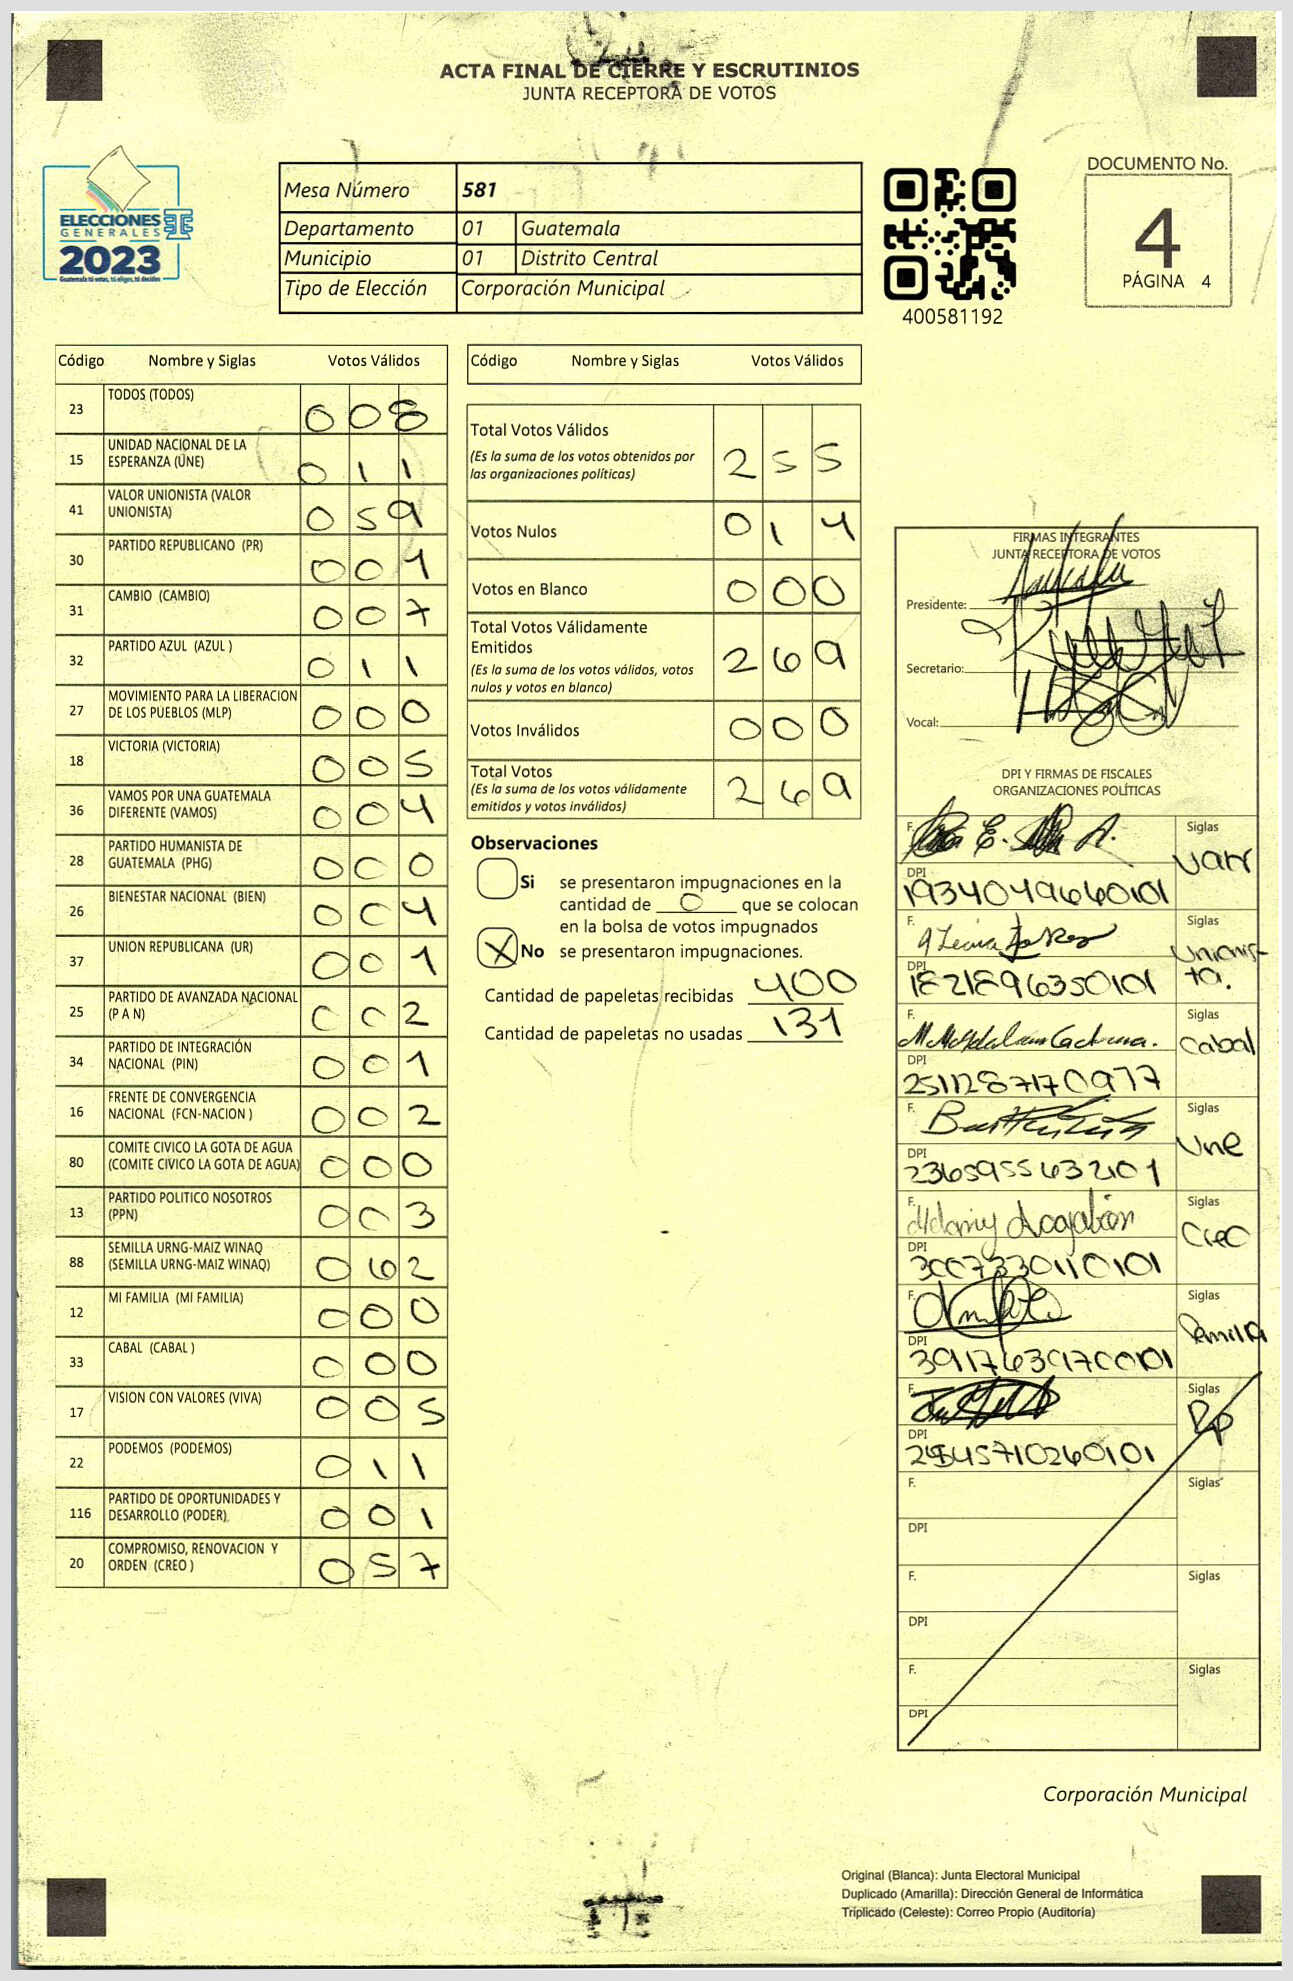 ACTA FINAL DE CIERRE Y ESCRUTINIOS
JUNTA RECEPTORA DE VOTOS
ELECCIONES
GENERALES
2023
Guatemala tú votas, tú eliges, tú decides
Mesa Número 581
Departamento 01 Guatemala
Municipio 01 Distrito Central
Tipo de Elección Corporación Municipal
400581192
DOCUMENTO No.
4
PÁGINA 4
Código Nombre y Siglas Votos Válidos
23 TODOS (TODOS) 008
15 UNIDAD NACIONAL DE LA
ESPERANZA (UNE) 011
41 VALOR UNIONISTA (VALOR
UNIONISTA) 059
30 PARTIDO REPUBLICANO (PR) 001
31 CAMBIO (CAMBIO) 007
32 PARTIDO AZUL (AZUL ) 011
27 MOVIMIENTO PARA LA LIBERACION
DE LOS PUEBLOS (MLP) 000
18 VICTORIA (VICTORIA) 005
36 VAMOS POR UNA GUATEMALA
DIFERENTE (VAMOS) 004
28 PARTIDO HUMANISTA DE
GUATEMALA (PHG) 000
26 BIENESTAR NACIONAL (BIEN) 004
37 UNION REPUBLICANA (UR) 001
25 PARTIDO DE AVANZADA NACIONAL
(P A N) 002
34 PARTIDO DE INTEGRACIÓN
NACIONAL (PIN) 001
16 FRENTE DE CONVERGENCIA
NACIONAL (FCN-NACION ) 002
80 COMITE CIVICO LA GOTA DE AGUA
(COMITE CIVICO LA GOTA DE AGUA) 000
13 PARTIDO POLITICO NOSOTROS
(PPN) 003
88 SEMILLA URNG-MAIZ WINAQ
(SEMILLA URNG-MAIZ WINAQ) 062
12 MI FAMILIA (MI FAMILIA) 000
33 CABAL (CABAL ) 000
17 VISION CON VALORES (VIVA) 005
22 PODEMOS (PODEMOS) 011
116 PARTIDO DE OPORTUNIDADES Y
DESARROLLO (PODER) 001
20 COMPROMISO, RENOVACION Y
ORDEN (CREO ) 057
Código Nombre y Siglas Votos Válidos
Total Votos Válidos
(Es la suma de los votos obtenidos por
las organizaciones políticas) 255
Votos Nulos 014
Votos en Blanco 000
Total Votos Válidamente
Emitidos
(Es la suma de los votos válidos, votos
nulos y votos en blanco) 269
Votos Inválidos 000
Total Votos
(Es la suma de los votos válidamente
emitidos y votos inválidos) 269
Observaciones
Si se presentaron impugnaciones en la
cantidad de 0 que se colocan
en la bolsa de votos impugnados
X No se presentaron impugnaciones.
Cantidad de papeletas recibidas 400
Cantidad de papeletas no usadas 131
FIRMAS INTEGRANTES
JUNTA RECEPTORA DE VOTOS
Presidente:
Secretario:
Vocal:
DPI Y FIRMAS DE FISCALES
ORGANIZACIONES POLÍTICAS
F. Siglas
DPI
1934049660101
F. Siglas Unionis-
ta.
DPI
F. Siglas Cabal
DPI
2511287170977
F. Siglas Une
DPI
F. Siglas Creo
DPI
3007330110101
F. Siglas
DPI
F. Siglas
DPI
F. Siglas
DPI
F. Siglas
DPI
F. Siglas
DPI
Corporación Municipal
Original (Blanca): Junta Electoral Municipal
Duplicado (Amarilla): Dirección General de Informática
Triplicado (Celeste): Correo Propio (Auditoría)